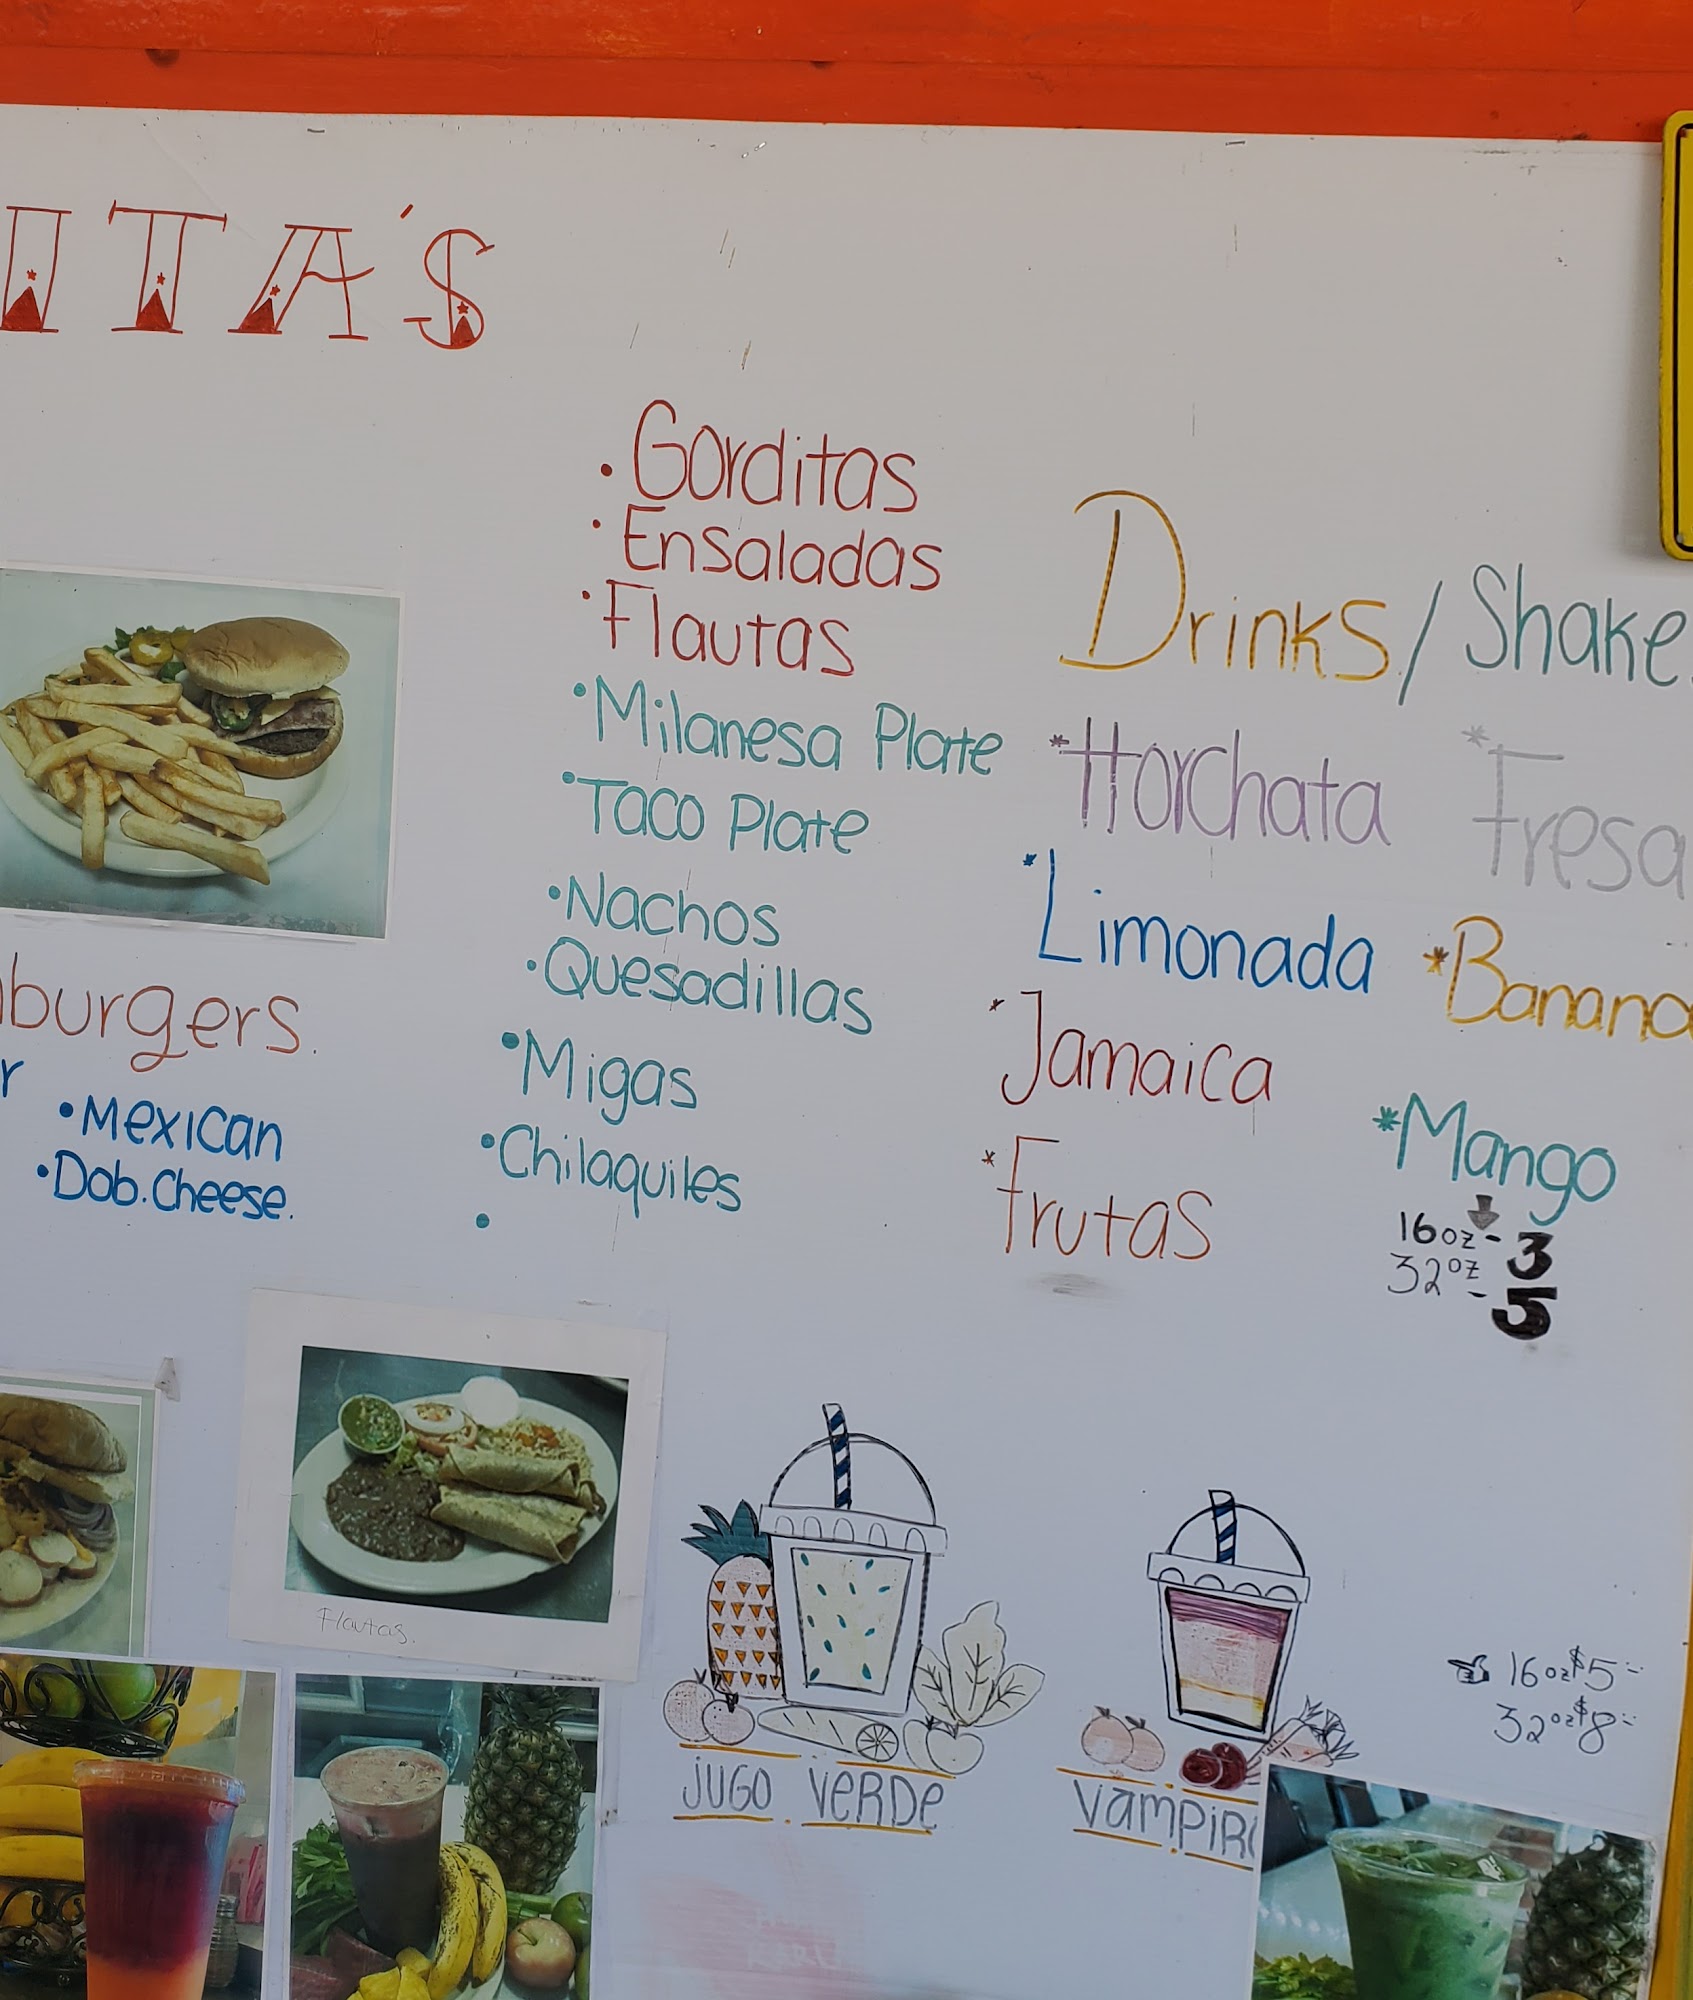 ITA'S
• Gorditas
• Ensaladas
• Flautas
• Milanesa Plate
• Taco Plate
• Nachos
• Quesadillas
• Migas
• Chilaquiles
•
burgers.
r
• Mexican
• Dob. Cheese.
Drinks / Shake
* Horchata
* Limonada
* Jamaica
* Frutas
* Fresa
* Banana
* Mango
16oz - 3
32oz - 5
Flautas.
JUGO VERDE
VAMPIRO
16oz $5
32oz $8